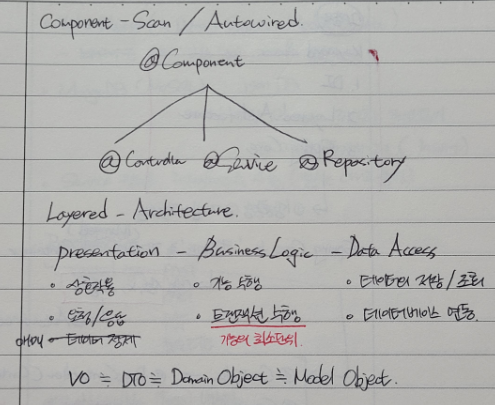 Component-Scan / Autowired.
@Component
@Controller @Service @Repository
Layered-Architecture.
presentation - Business Logic - Data Access
• 상호작용 • 기능 수행 • 데이터 저장/조회
• 요청/응답 • 트랜잭션 수행 • 데이터베이스 연동.
데이터 정제 기능의 최소단위
VO ≒ DTO ≒ Domain Object ≒ Model Object.